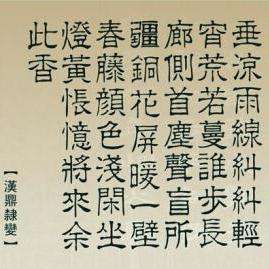 垂涼雨線糾糾輕
宵荒若蔓誰步長
廊側首塵聲盲所
疆銅花屏暖一壁
春藤顏色淺閑坐
燈黃悵憶將來余
此香
【漢鼎隸變】